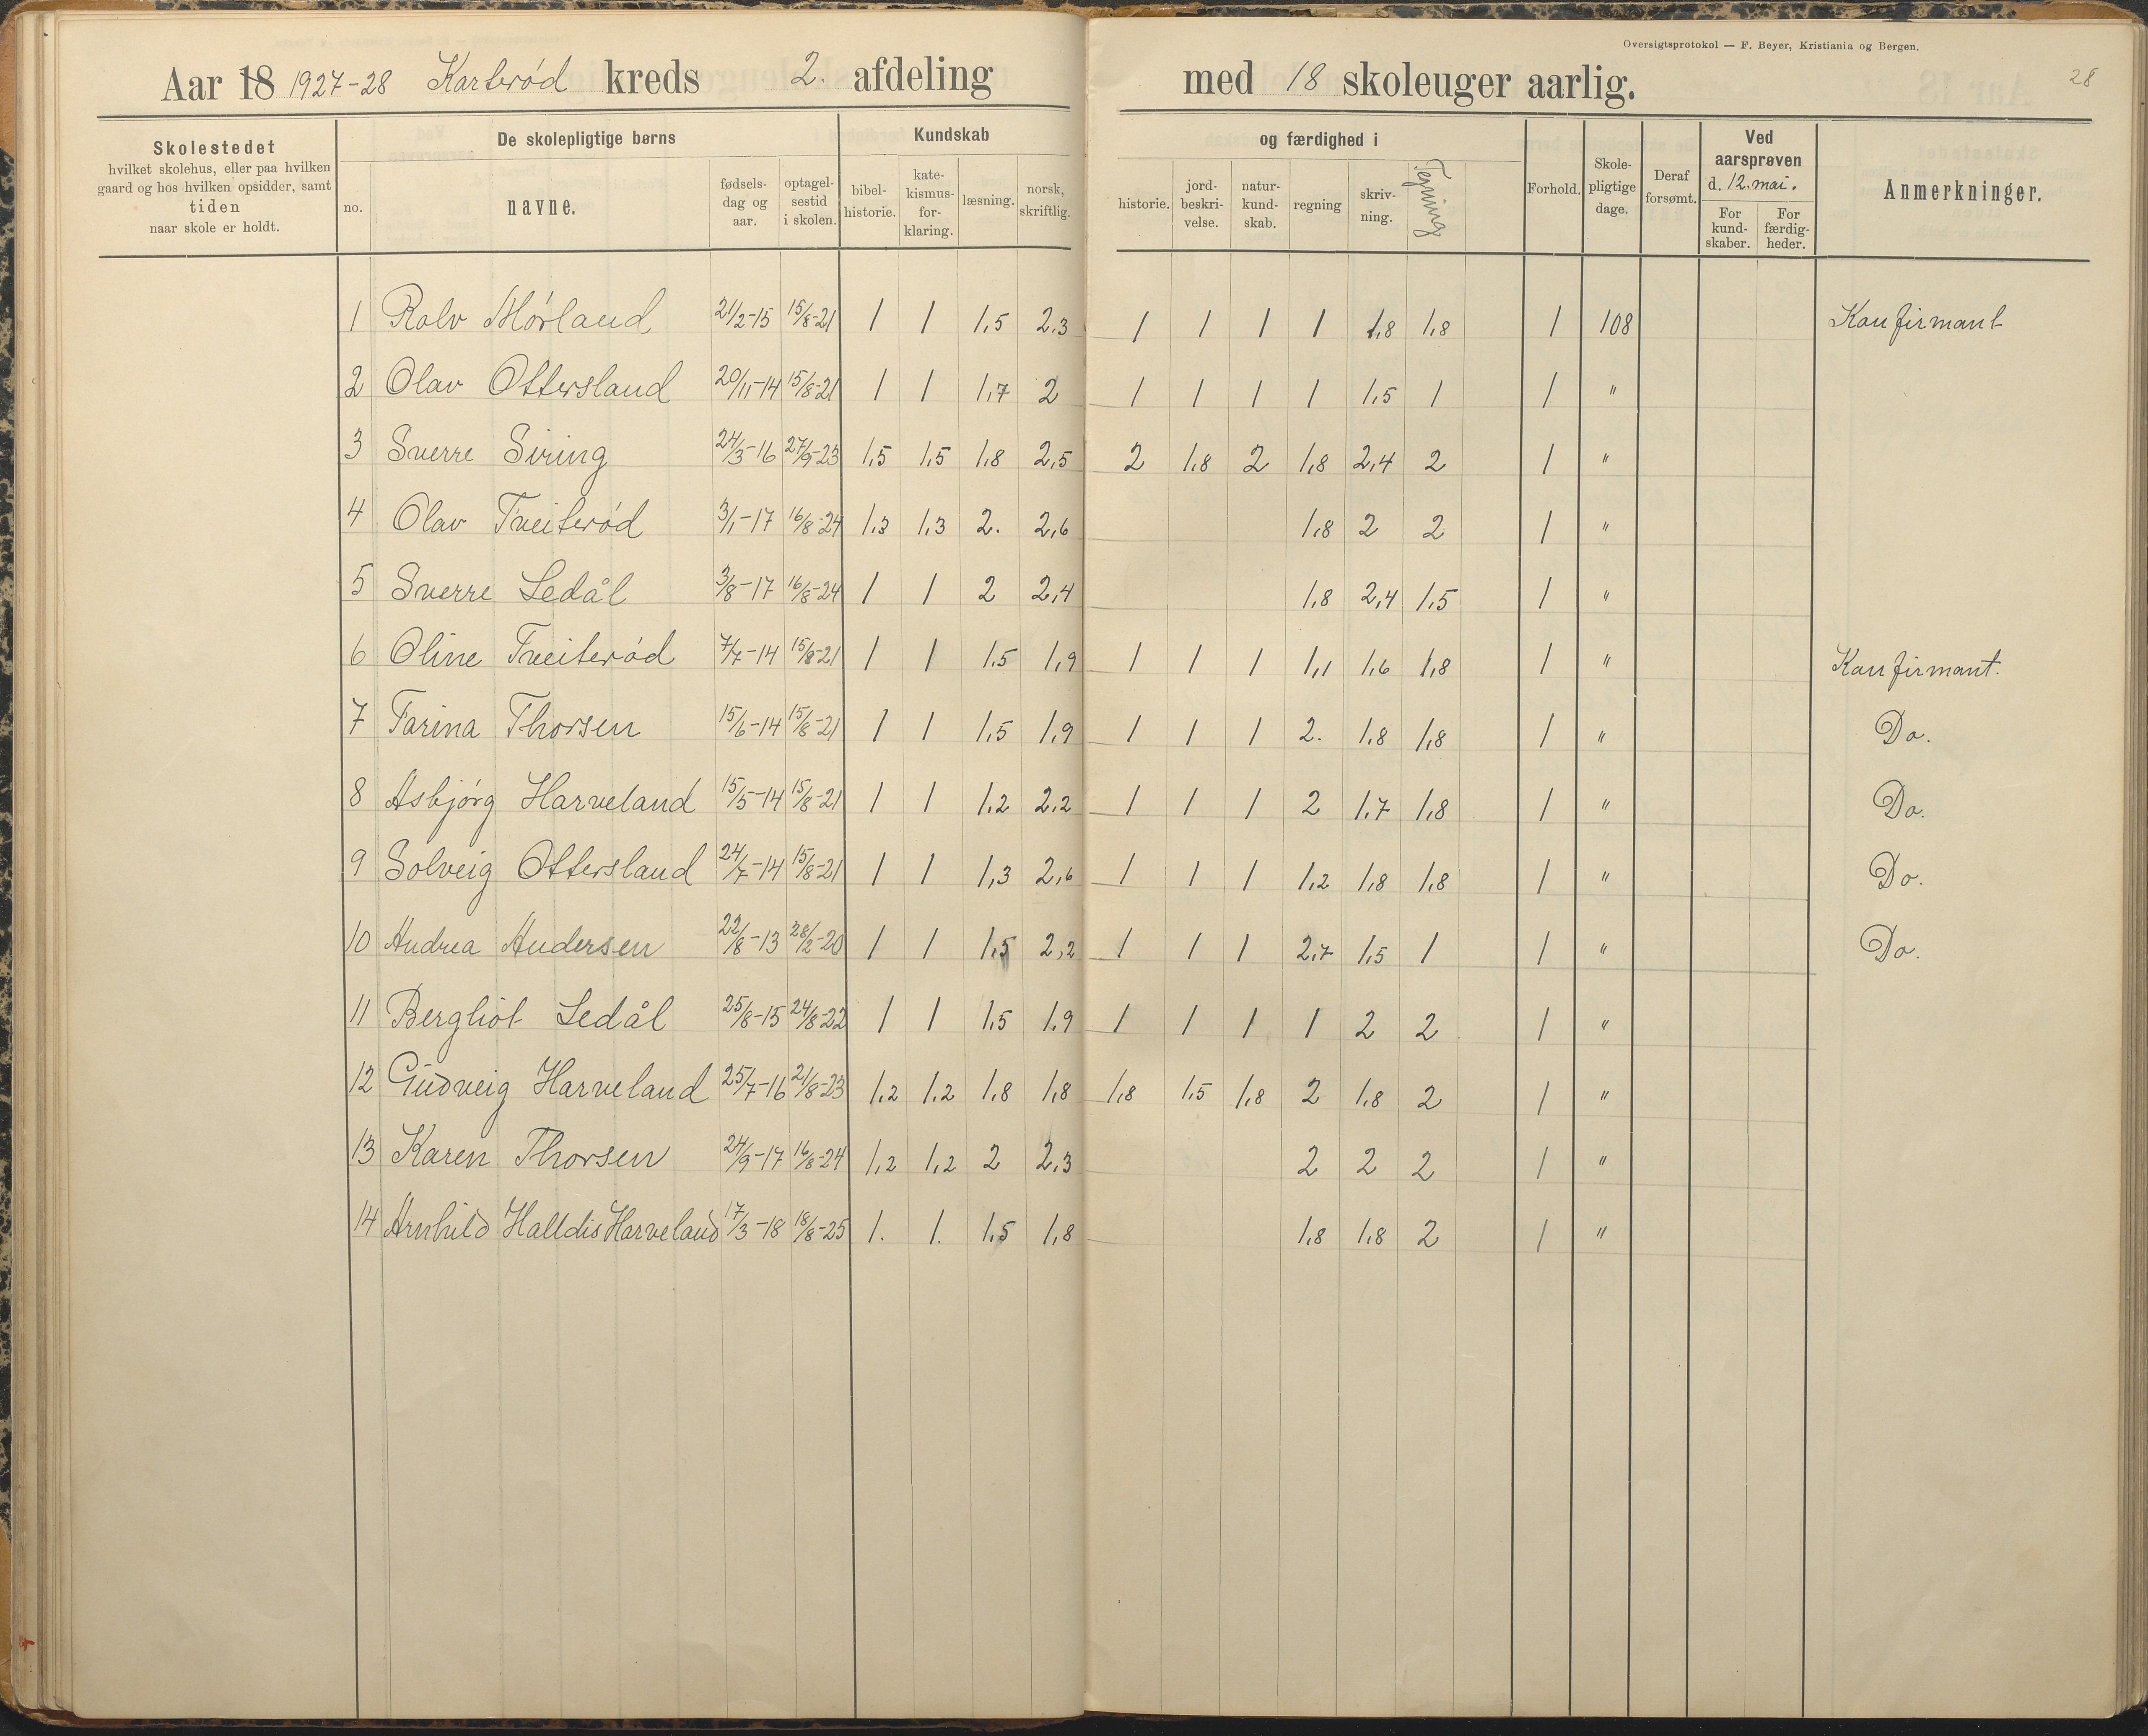 Oversigtsprotokol — F. Beyer, Kristiania og Bergen.
28
Aar 18 1927-28 Karterød kreds 2. afdeling med 18 skoleuger aarlig.
Skolestedet hvilket skolehus, eller paa hvilken gaard og hos hvilken opsidder, samt tiden naar skole er holdt.
De skolepligtige børns
no. navne. fødsels-dag og aar. optagel-sestid i skolen.
Kundskab og færdighed i
bibel-historie. kate-kismus-for-klaring. læsning. norsk, skriftlig. historie. jord-beskri-velse. natur-kund-skab. regning skriv-ning. Tegning
Forhold. Skole-pligtige dage. Deraf forsømt.
Ved aarsprøven d. 12. mai.
For kund-skaber. For færdig-heder.
Anmerkninger.
1 Rolv Mørland 21/2-15 15/8-21 1 1 1,5 2,3 1 1 1 1 1,8 1,8 1 108 Konfirmant
2 Olav Ottersland 20/11-14 15/8-21 1 1 1,7 2 1 1 1 1 1,5 1 1 "
3 Sverre Siring 24/3-16 27/9-23 1,5 1,5 1,8 2,5 2 1,8 2 1,8 2,4 2 1 "
4 Olav Tveiterød 3/1-17 16/8-24 1,3 1,3 2. 2,6 1,8 2 2 1 "
5 Sverre Ledål 3/8-17 16/8-24 1 1 2 2,4 1,8 2,4 1,5 1 "
6 Oline Tveiterød 7/7-14 15/8-21 1 1 1,5 1,9 1 1 1 1,1 1,6 1,8 1 " Konfirmant.
7 Farina Thorsen 15/6-14 15/8-21 1 1 1,5 1,9 1 1 1 2. 1,8 1,8 1 " Do.
8 Asbjørg Harveland 15/5-14 15/8-21 1 1 1,2 2,2 1 1 1 2 1,7 1,8 1 " Do.
9 Solveig Ottersland 24/7-14 15/8-21 1 1 1,3 2,6 1 1 1 1,2 1,8 1,8 1 " Do.
10 Andrea Andersen 22/8-13 28/2-20 1 1 1,5 2,2 1 1 1 2,7 1,5 1 1 " Do.
11 Bergliot Ledål 25/8-15 24/8-22 1 1 1,5 1,9 1 1 1 1 2 2 1 "
12 Gudveig Harveland 25/7-16 21/8-23 1,2 1,2 1,8 1,8 1,8 1,5 1,8 2 1,8 2 1 "
13 Karen Thorsen 24/9-17 16/8-24 1,2 1,2 2 2,3 2 2 2 1 "
14 Arnhild Halldis Harveland 17/3-18 18/8-25 1. 1. 1,5 1,8 1,8 1,8 2 1 "